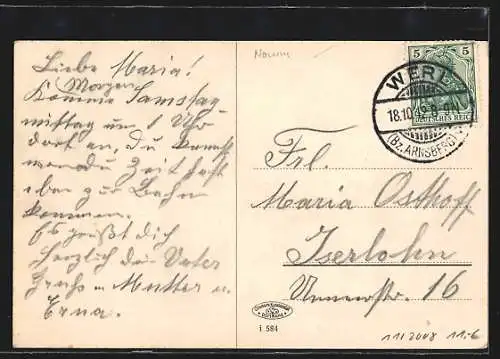 Liebe Maria!
Morgen
Komme Samstag
mittag um 1 Uhr
dort an, du kannst
wenn du Zeit hast
eben zur Bahn
kommen.
Es grüßt dich
herzlich dein Vater
Mutter u.
Erna.
5 5
DEUTSCHES REICH
WERL
18.10.
(Bz. ARNSBERG)
Frl.
Maria Osthoff
Iserlohn
16
i 584
1112008 11-6